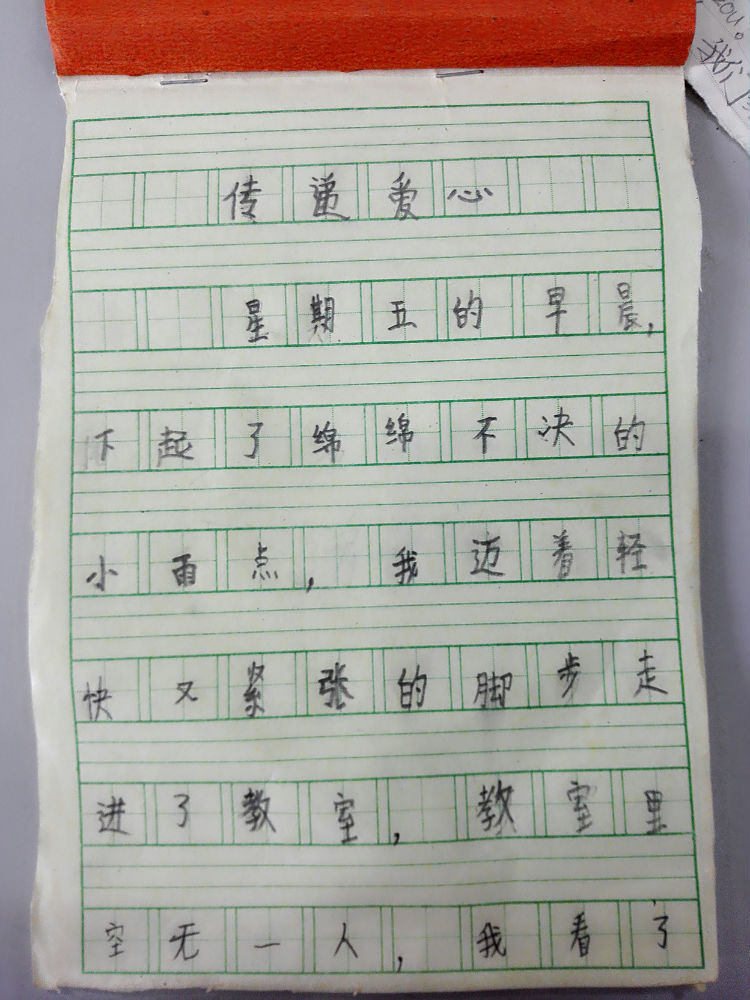 zou。
我们
传递爱心
星期五的早晨，
下起了绵绵不决的
小雨点，我迈着轻
快又紧张的脚步走
进了教室，教室里
空无一人，我看了